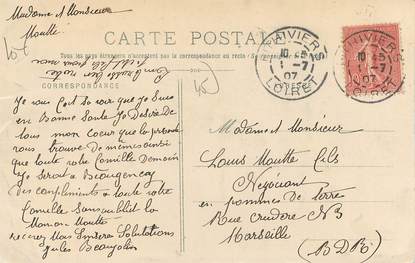 Madame et Monsieur
Moutte
CARTE POSTALE
Tous les pays étrangers n'acceptent pas la correspondance au recto
CORRESPONDANCE
PITHIVIERS
10
1 - 7
07
LOIRET
PITHIVIERS
10
1 - 7
07
LOIRET
Je vous écrit ce soir que Je suis
en Bonne Santé Je Désire de
tous mon coeur que la présente
vous trouve de même ainsi
que toute votre Camille Demain
Je serai à Beaugency
des compliments à toute votre
Camille sans oublié la
Maman Moutte
recevez mes Sincères Salutations
Jules
Madame et Monsieur
Louis Moutte Fils
Négociant
en pommes de terre
Rue N3
Marseille
(BDR)